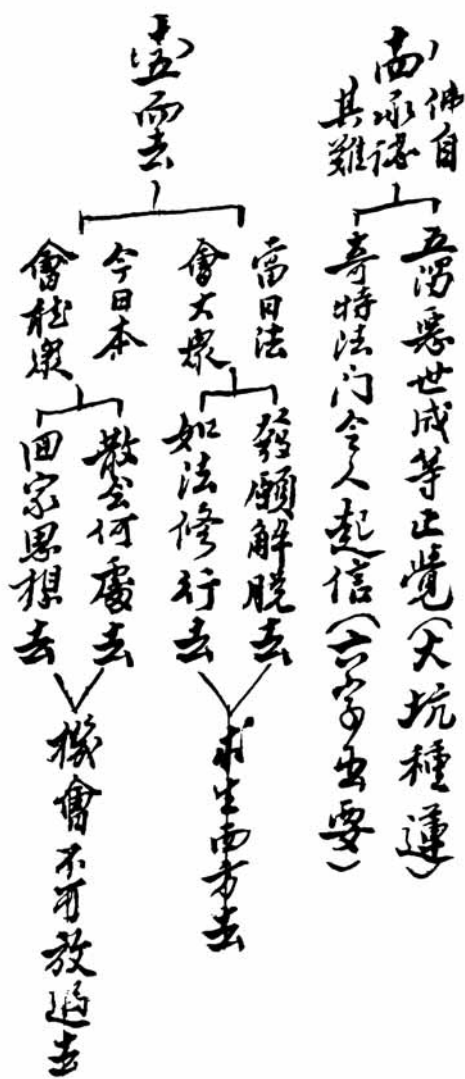 佛自
承認
其難
五濁惡世成等正覺(火坑種蓮)
奇特法门令人起信(六字要)
而去
當日法
會大眾
發願解脱去
如法修行去
求生西方去
今日本
會聽眾
散会何處去
回家思想去
機會不可放過去